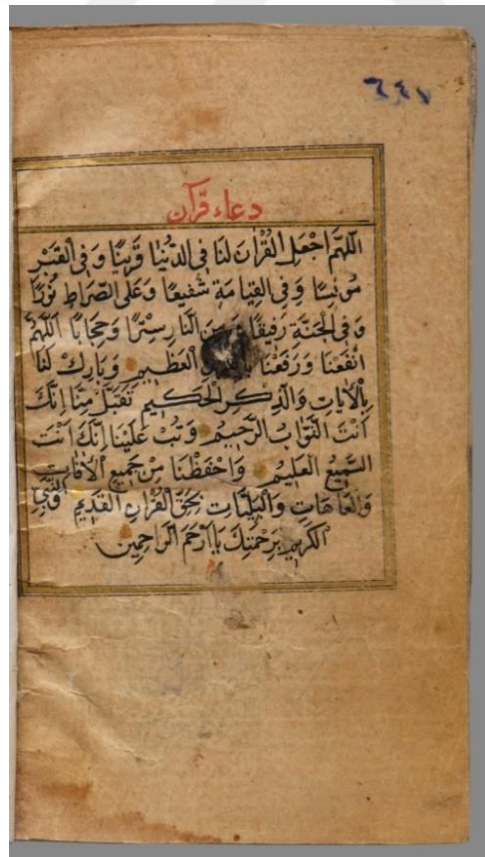 ٦٤٧
دعاء قرآن
اَللّٰهُمَّ اجْعَلِ الْقُرْاٰنَ لَنَا فِى الدُّنْيَا قَرِينًا وَفِى الْقَبْرِ
مُونِسًا وَفِى الْقِيَامَةِ شَفِيعًا وَعَلَى الصِّرَاطِ نُورًا
وَفِى الْجَنَّةِ رَفِيقًا وَمِنَ النَّارِ سِتْرًا وَحِجَابًا اَللّٰهُمَّ
انْفَعْنَا وَرَفَعْنَا الْعَظِيمِ وَبَارِكْ لَنَا
بِالْاٰيَاتِ وَالذِّكْرِ الْحَكِيمِ تَقَبَّلْ مِنَّا اِنَّكَ
اَنْتَ التَّوَّابُ الرَّحِيمُ وَتُبْ عَلَيْنَا اِنَّكَ اَنْتَ
السَّمِيعُ الْعَلِيمُ وَاحْفَظْنَا مِنْ جَمِيعِ الْاٰفَاتِ
وَالْعَاهَاتِ وَالْبَلِيَّاتِ بِحَقِّ الْقُرْاٰنِ الْقَدِيمِ وَالنَّبِىِّ
الْكَرِيمِ بِرَحْمَتِكَ يَا اَرْحَمَ الرَّاحِمِينَ